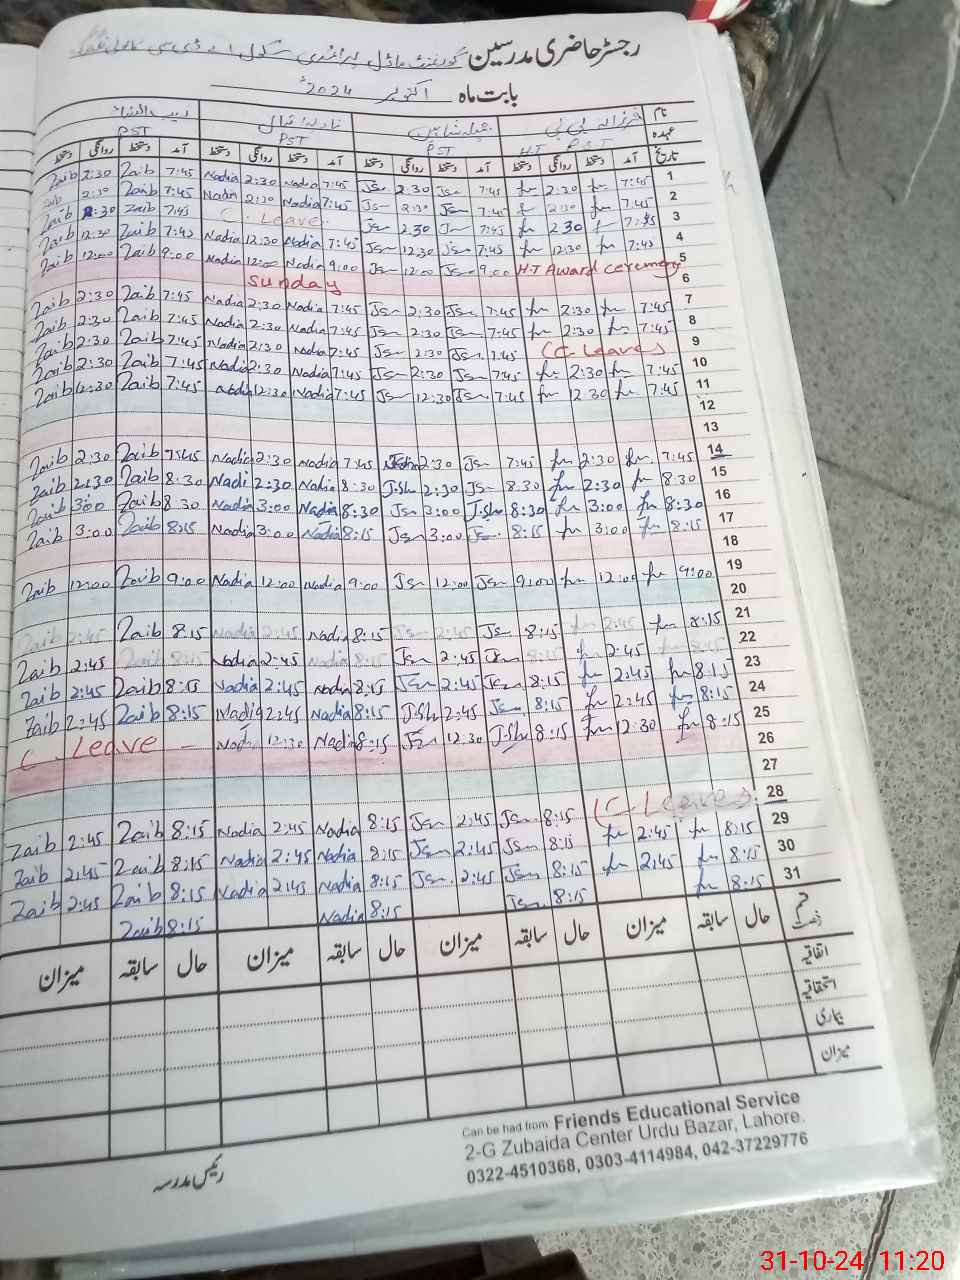 رجسٹر حاضری مدرسین گورنمنٹ ماڈل پرائمری سکول
بابت ماہ اکتوبر 2024ء
نام فرزانہ بی بی جمیلہ شاہین نادیہ اقبال زیب النساء
عہدہ PST HT PST PST PST
تاریخ آمد دستخط روانگی دستخط آمد دستخط روانگی دستخط آمد دستخط روانگی دستخط آمد دستخط روانگی دستخط
Zaib 2:30 Zaib 7:45 Nadia 2:30 Nadia 7:45 Jsn 2:30 Jsn 7:45 fr 2:30 fr 7:45 1
Zaib 2:30 Zaib 7:45 Nadia 2:30 Nadia 7:45 Jsn 2:30 Jsn 7:45 fr 2:30 fr 7:45 2
Zaib 2:30 Zaib 7:45 C. Leave. Jsn 2:30 Jsn 7:45 fr 2:30 fr 7:45 3
Zaib 12:30 Zaib 7:45 Nadia 12:30 Nadia 7:45 Jsn 12:30 Jsn 7:45 fr 12:30 fr 7:45 4
Zaib 12:00 Zaib 9:00 Nadia 12:00 Nadia 9:00 Jsn 12:00 Jsn 9:00 H-T Award ceremony 5
Sunday 6
Zaib 2:30 Zaib 7:45 Nadia 2:30 Nadia 7:45 Jsn 2:30 Jsn 7:45 fr 2:30 fr 7:45 7
Zaib 2:30 Zaib 7:45 Nadia 2:30 Nadia 7:45 Jsn 2:30 Jsn 7:45 fr 2:30 fr 7:45 8
Zaib 2:30 Zaib 7:45 Nadia 2:30 Nadia 7:45 Jsn 2:30 Jsn 7:45 (C. Leave) 9
Zaib 2:30 Zaib 7:45 Nadia 2:30 Nadia 7:45 Jsn 2:30 Jsn 7:45 fr 2:30 fr 7:45 10
Zaib 12:30 Zaib 7:45 Nadia 12:30 Nadia 7:45 Jsn 12:30 Jsn 7:45 fr 12:30 fr 7:45 11
12
13
Zaib 2:30 Zaib 7:45 Nadia 2:30 Nadia 7:45 2:30 Jsn 7:45 fr 2:30 fr 7:45 14
Zaib 2:30 Zaib 8:30 Nadi 2:30 Nadia 8:30 J.Sh 2:30 Jsn 8:30 fr 2:30 fr 8:30 15
Zaib 3:00 Zaib 8:30 Nadia 3:00 Nadia 8:30 Jsn 3:00 J.Sh 8:30 fr 3:00 fr 8:30 16
Zaib 3:00 Zaib 8:15 Nadia 3:00 Nadia 8:15 Jsn 3:00 Jsn 8:15 fr 3:00 fr 8:15 17
18
Zaib 12:00 Zaib 9:00 Nadia 12:00 Nadia 9:00 Jsn 12:00 Jsn 9:00 fr 12:00 fr 9:00 19
20
Zaib 2:45 Zaib 8:15 Nadia 2:45 Nadia 8:15 Jsn 2:45 Jsn 8:15 fr 2:45 fr 8:15 21
Zaib 2:45 Zaib 8:15 Nadia 2:45 Nadia 8:15 Jsn 2:45 Jsn 8:15 fr 2:45 fr 8:15 22
Zaib 2:45 Zaib 8:15 Nadia 2:45 Nadia 8:15 Jsn 2:45 Jsn 8:15 fr 2:45 fr 8:15 23
Zaib 2:45 Zaib 8:15 Nadia 2:45 Nadia 8:15 J.Sh 2:45 Jsn 8:15 fr 2:45 fr 8:15 24
C. Leave Nadi 12:30 Nadia 8:15 Jsn 12:30 J.Sh 8:15 fr 12:30 fr 8:15 25
26
27
Zaib 2:45 Zaib 8:15 Nadia 2:45 Nadia 8:15 Jsn 2:45 Jsn 8:15 (C. Leave) 28
Zaib 2:45 Zaib 8:15 Nadia 2:45 Nadia 8:15 Jsn 2:45 Jsn 8:15 fr 2:45 fr 8:15 29
Zaib 2:45 Zaib 8:15 Nadia 2:45 Nadia 8:15 Jsn 2:45 Jsn 8:15 fr 2:45 fr 8:15 30
Zaib 8:15 Nadia 8:15 Jsn 8:15 fr 8:15 31
قسم رخصت حال سابقہ میزان حال سابقہ میزان حال سابقہ میزان حال سابقہ میزان
اتفاقیہ
استحقاقیہ
بیماری
میزان
رئیس مدرسہ
Can be had from Friends Educational Service
2-G Zubaida Center Urdu Bazar, Lahore.
0322-4510368, 0303-4114984, 042-37229776
31-10-24 11:20